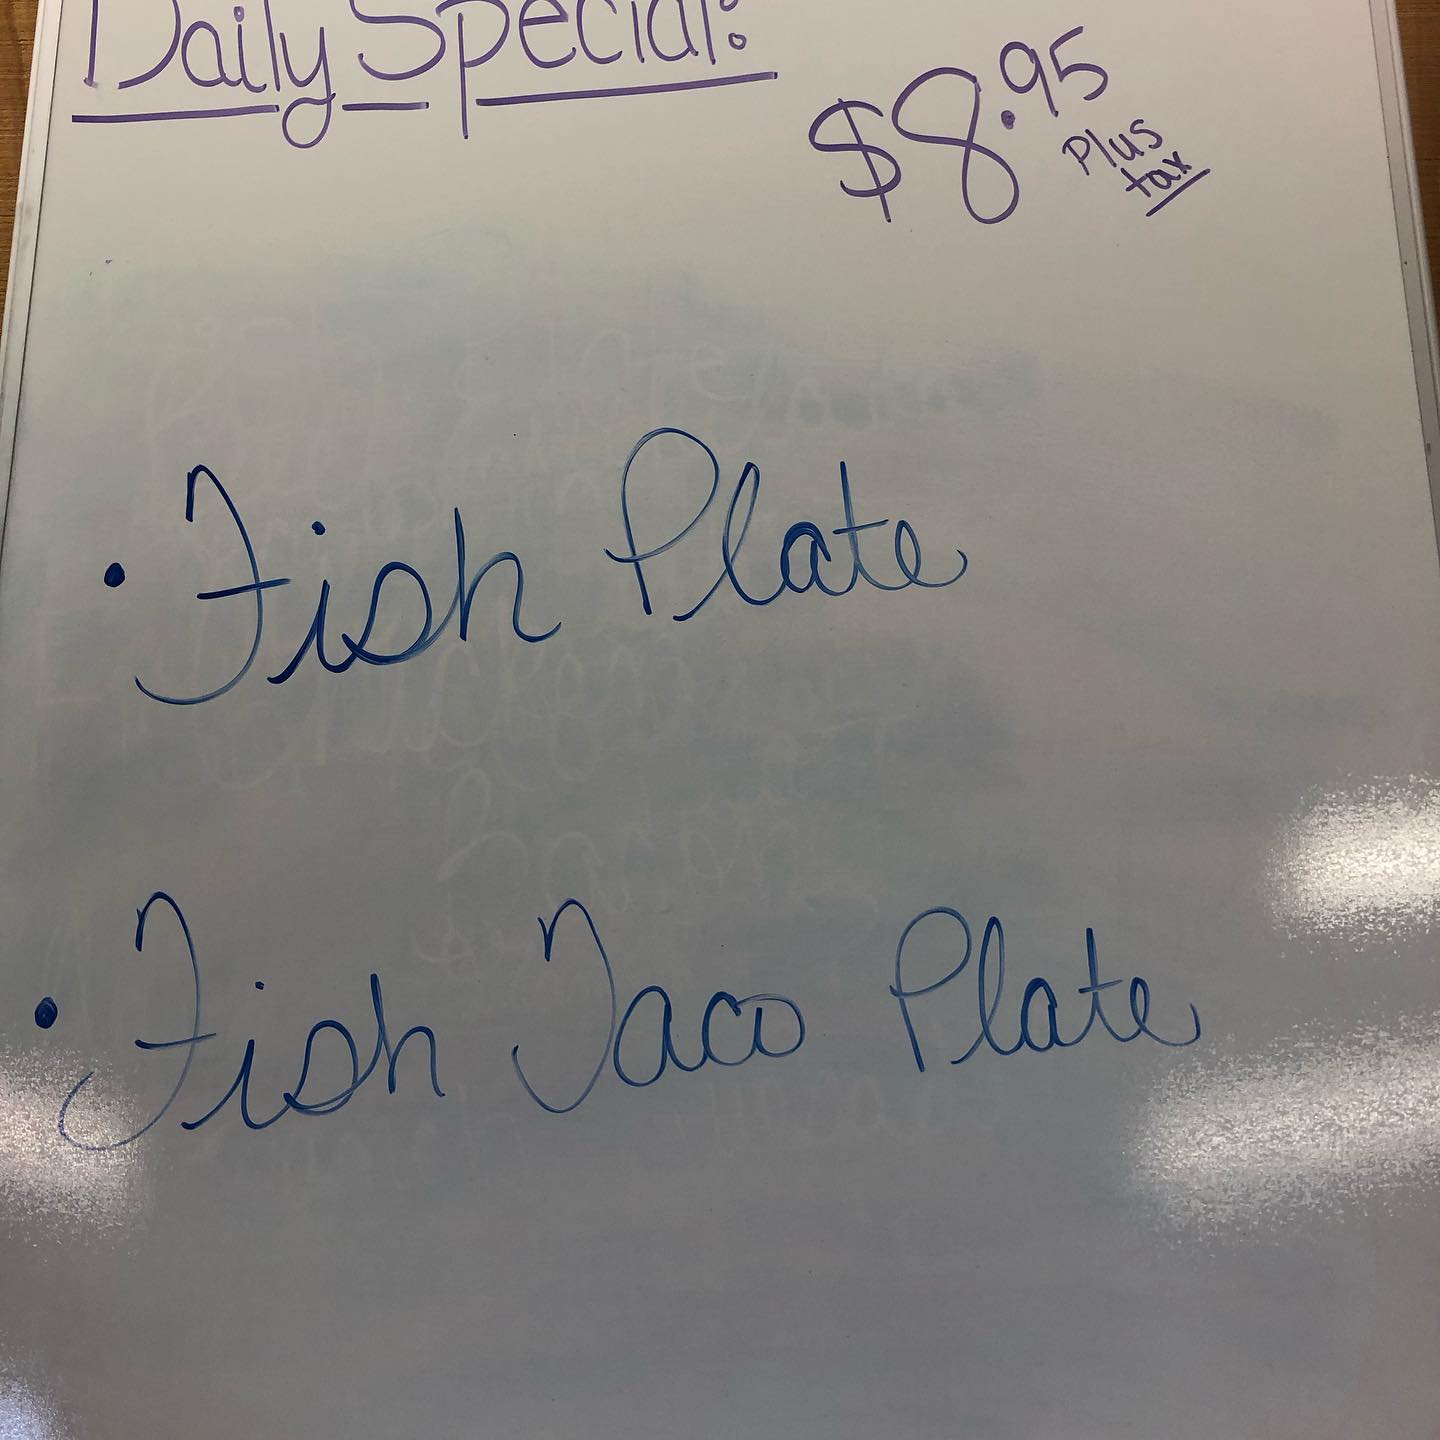 Daily Special:
$8.95
plus
tax
• Fish Plate
• Fish Taco Plate